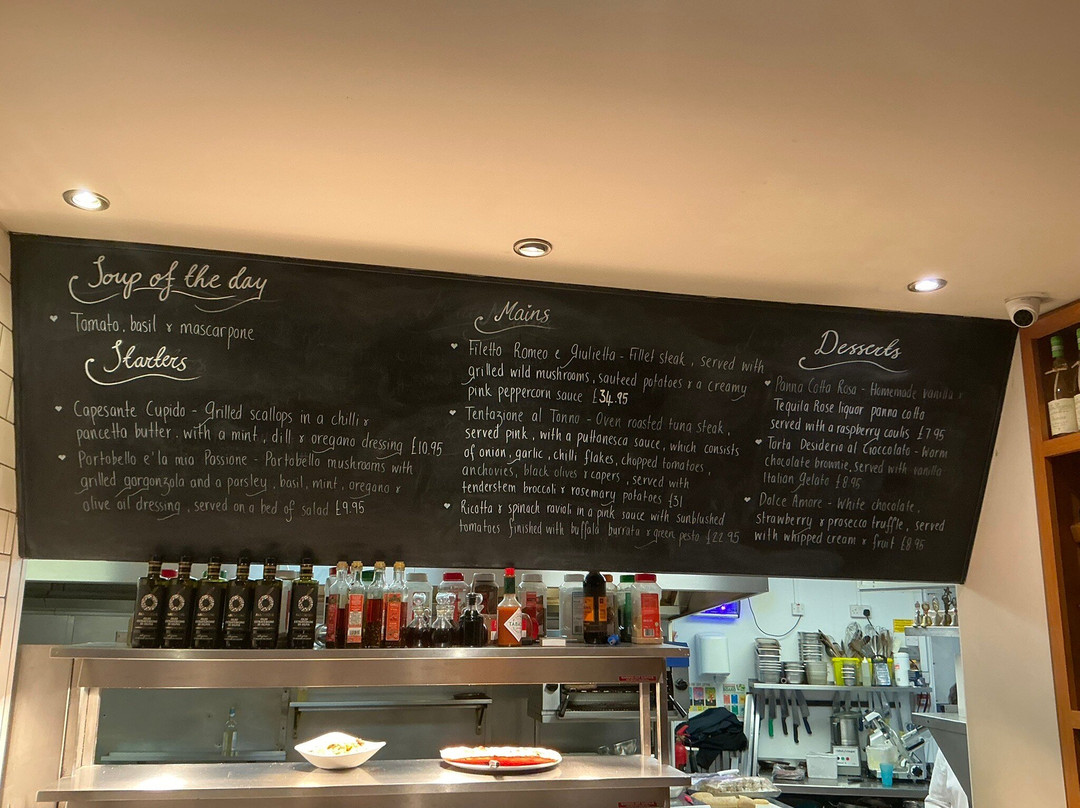 Soup of the day
Tomato, basil & mascarpone
Starters
Capesante Cupido - Grilled scallops in a chilli &
pancetta butter, with a mint, dill & oregano dressing £10.95
Portobello e' la mia Passione - Portobello mushrooms with
grilled gorgonzola and a parsley, basil, mint, oregano &
olive oil dressing, served on a bed of salad £9.95
Mains
Filetto Romeo e Giulietta - Fillet steak, served with
grilled wild mushrooms, sauteed potatoes & a creamy
pink peppercorn sauce £34.95
Tentazione al Tonno - Oven roasted tuna steak,
served pink, with a puttanesca sauce, which consists
of onion, garlic, chilli flakes, chopped tomatoes,
anchovies, black olives & capers, served with
tenderstem broccoli & rosemary potatoes £31
Ricotta & spinach ravioli in a pink sauce with sunblushed
tomatoes finished with buffalo burrata & green pesto £22.95
Desserts
Panna Cotta Rosa - Homemade vanilla &
Tequila Rose liquor panna cotta
served with a raspberry coulis £7.95
Torta Desiderio al Cioccolato - Warm
chocolate brownie, served with vanilla
Italian gelato £8.95
Dolce Amore - White chocolate,
strawberry & prosecco truffle, served
with whipped cream & fruit £8.95